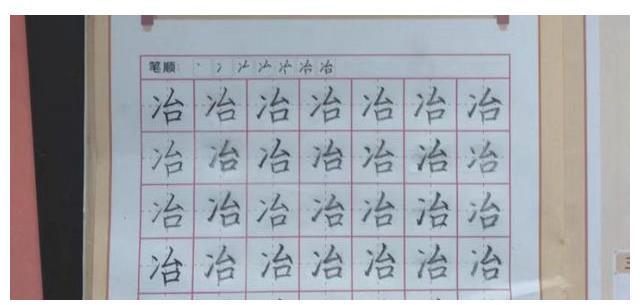 笔顺: 丶 冫 冫 冶 冶 冶 冶
冶 冶 冶 冶 冶 冶 冶
冶 冶 冶 冶 冶 冶 冶
冶 冶 冶 冶 冶 冶 冶
冶 冶 冶 冶 冶 冶 冶